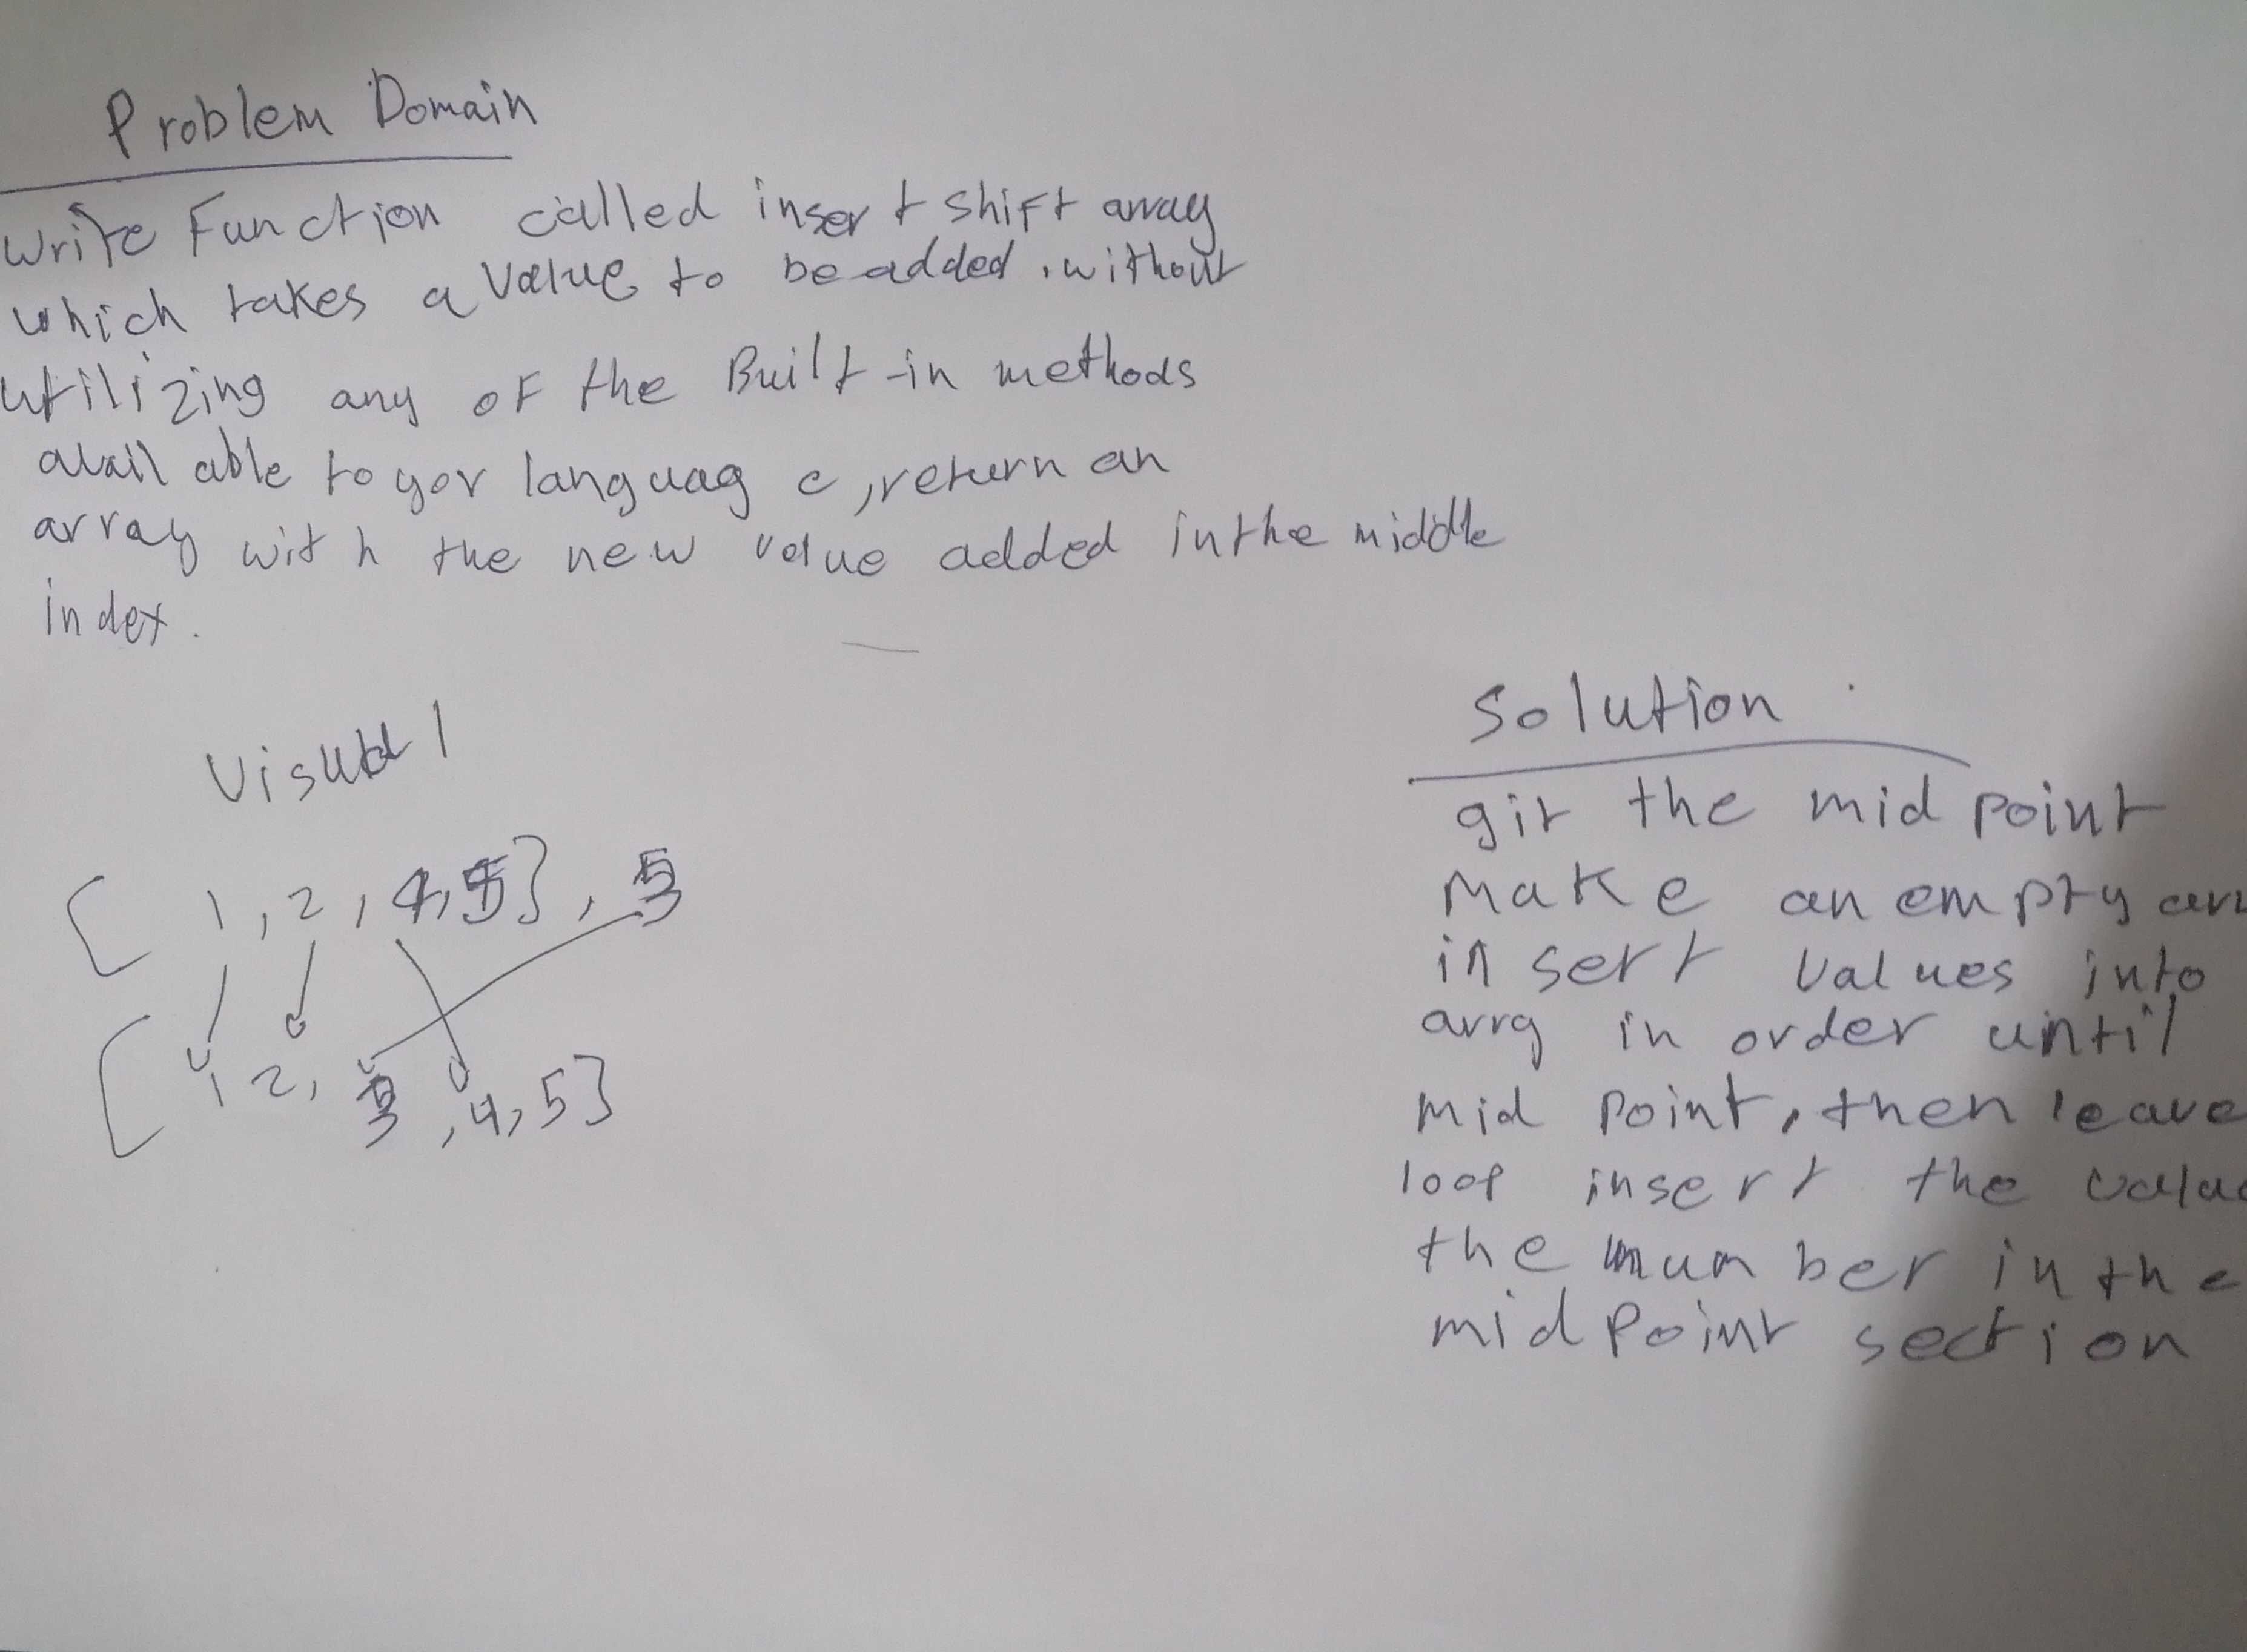 Problem Domain
Write Function called insert shift array
which takes a value to be added, without
utilizing any of the Built-in methods
avail able to yor languag e, return an
array with the new value added in the middle
index.
Visual
[ 1, 2, 4, 5], 3
[ 1 2, 3, 4, 5]
Solution
git the mid point
Make an empty arr
insert values into
arry in order until
mid point, then leave
loop insert the value
the number in the
mid point section